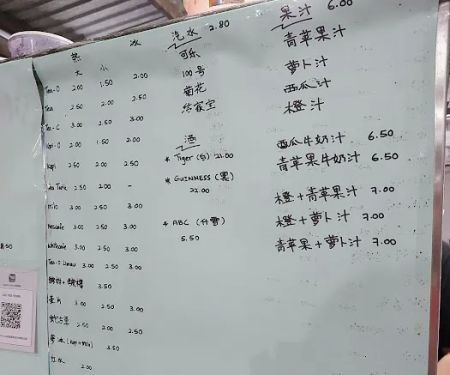 热 冰
大 小
Tea-O 2.00 1.50 2.00
Tea 2.50 2.00 2.50
Tea-C 3.00 2.50 3.00
Kopi-O 2.00 1.50 2.00
Kopi 2.50 2.00 2.50
2.50 2.00 -
Milo 3.00 2.50 3.00
Nescafe 3.00 2.50 3.00
3.00 2.50 3.00
3.00 2.50 3.00
3.50
3.00 2.50 3.00
2.50 2.00 2.50
3.50
2.00
汽水 2.80
可乐
100号
菊花
酒
* Tiger 21.00
* GUINNESS (黑)
* ABC
5.50
果汁 6.00
青苹果汁
萝卜汁
西瓜汁
橙汁
西瓜牛奶汁 6.50
青苹果牛奶汁 6.50
橙+青苹果汁 7.00
橙+萝卜汁 7.00
青苹果+萝卜汁 7.00